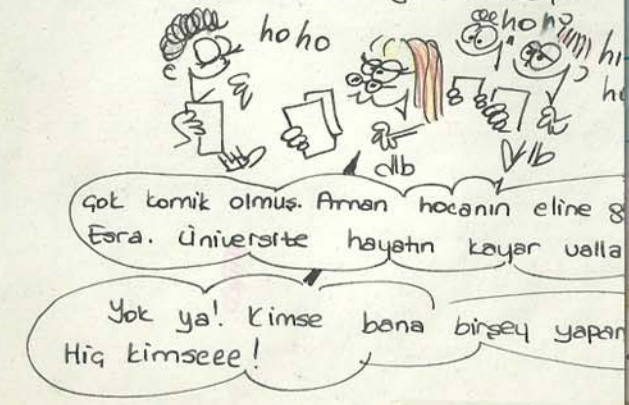 hoho
hoho
dlb
Vlb
Çok komik olmuş. Aman hocanın eline
Esra. Üniversite hayatın kayar valla
Yok ya! Kimse bana birşey yapar
Hiç kimseee!